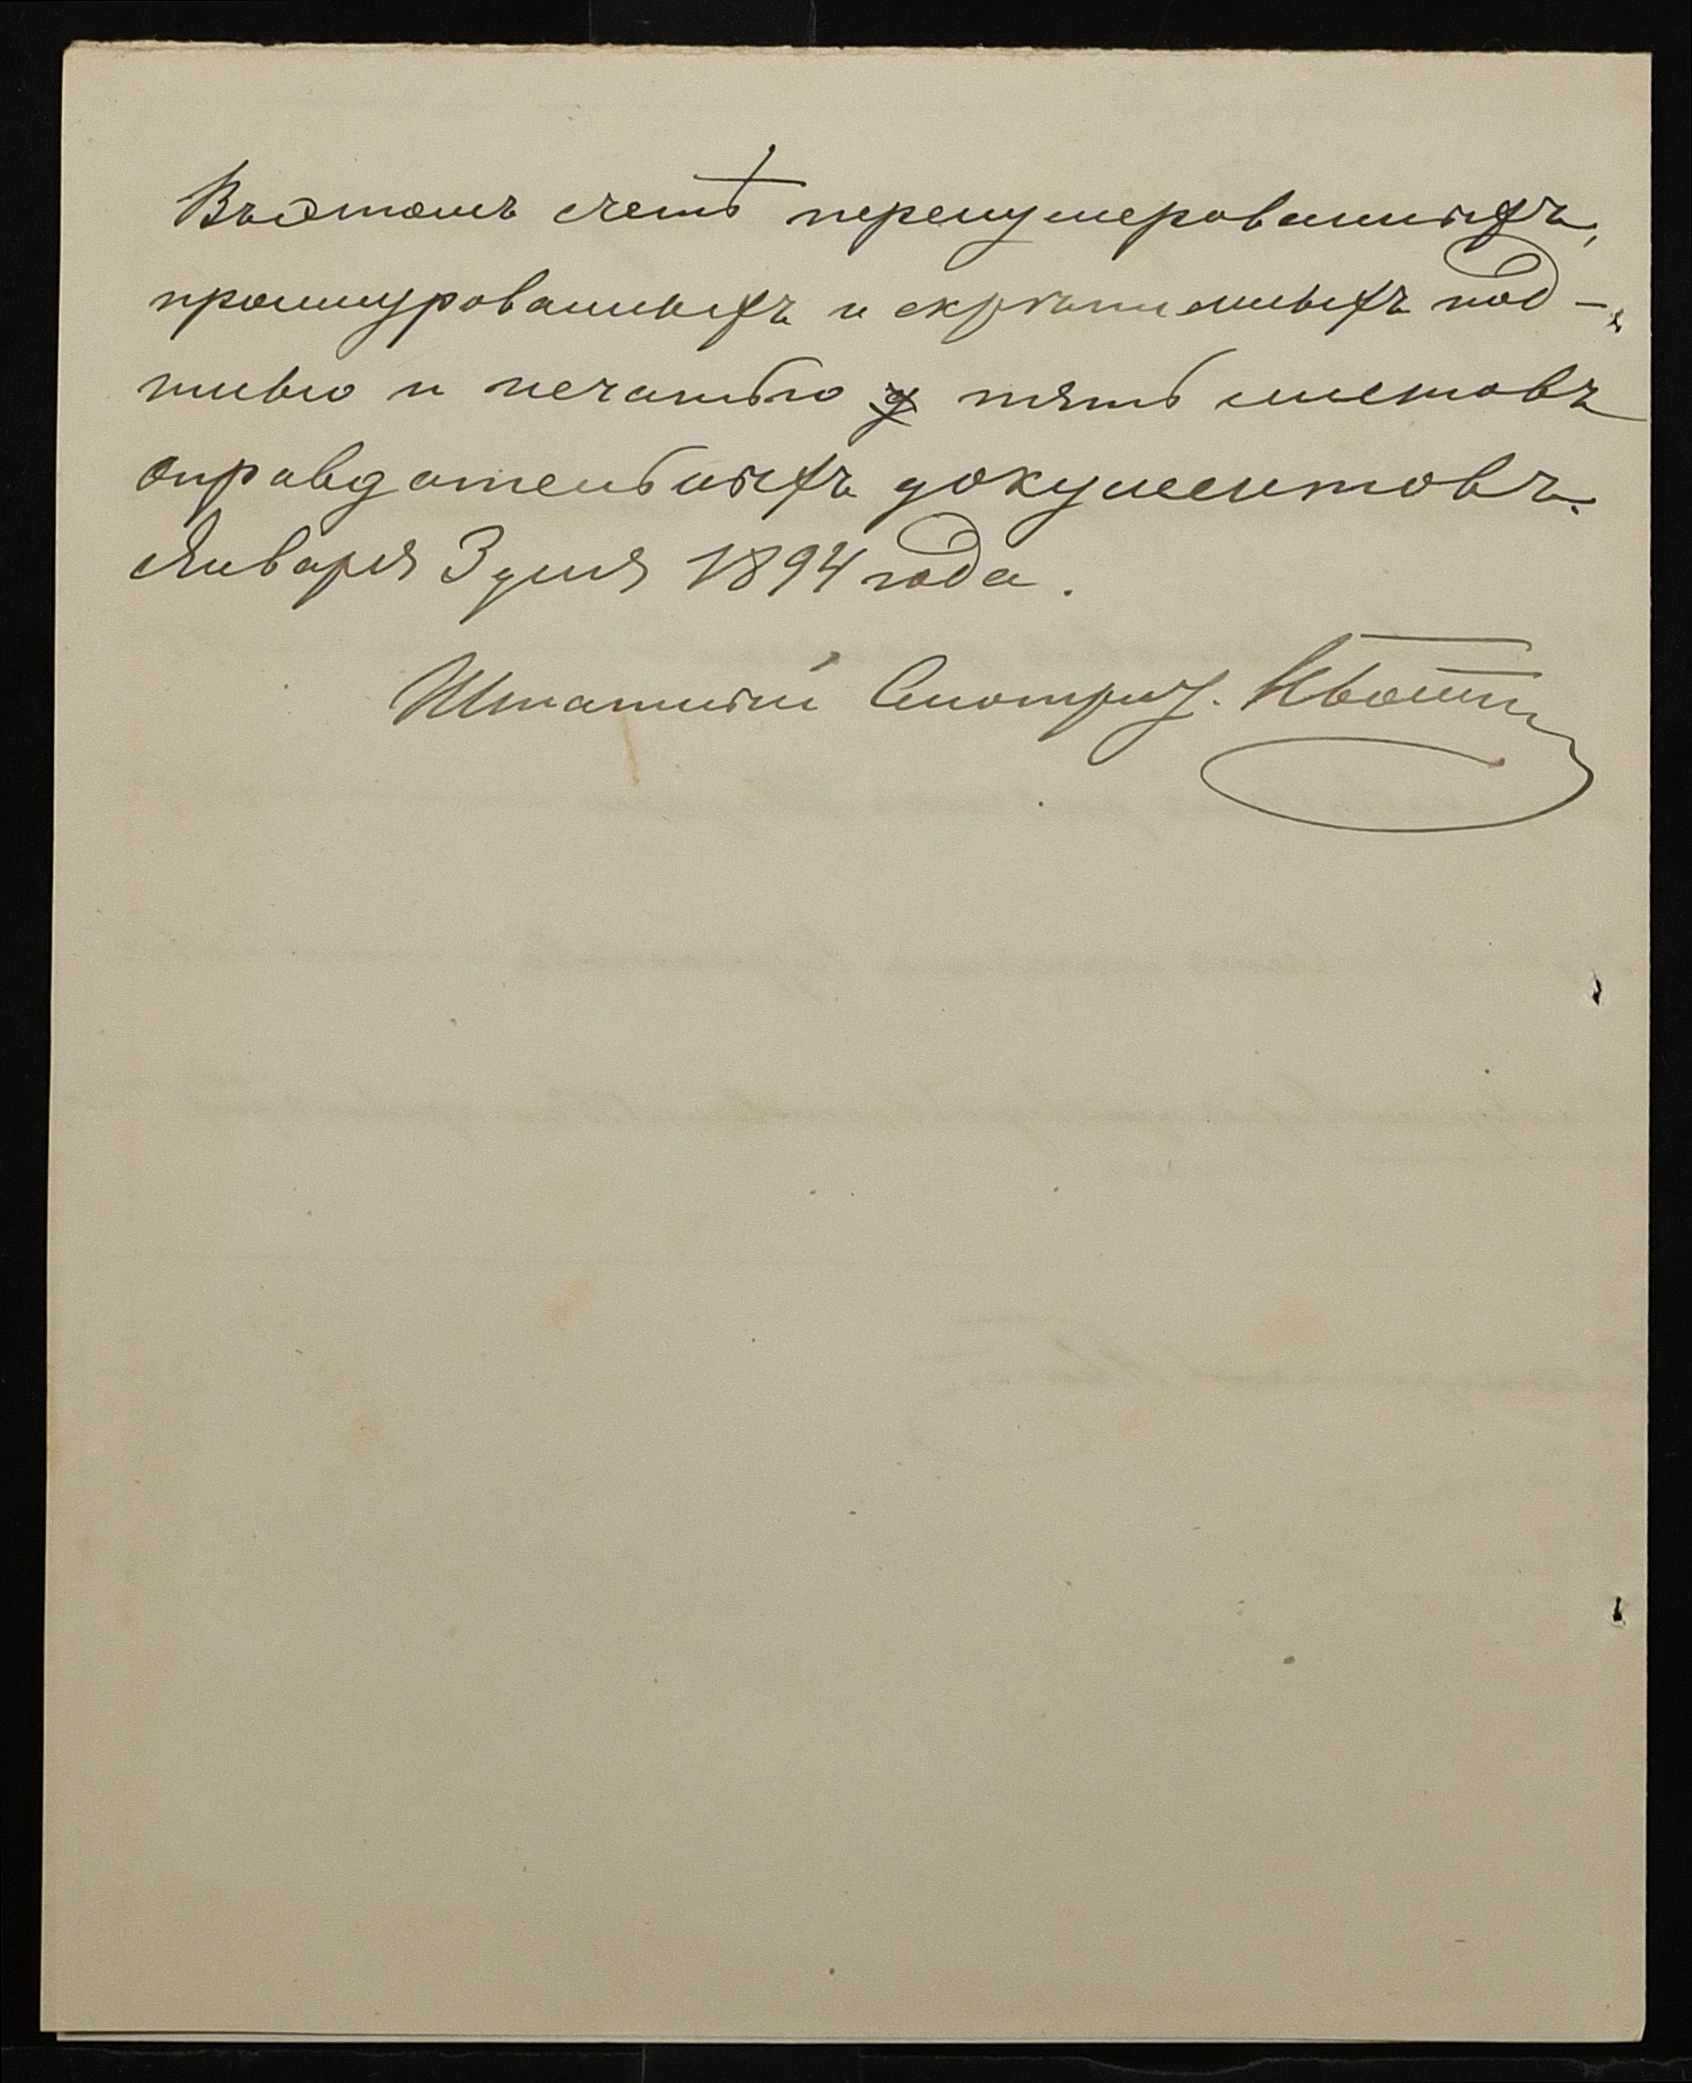 Въ этомъ счетѣ перенумерованныхъ,
прошнурованныхъ и скрѣпленныхъ под-
писью и печатью пять листовъ
оправдательныхъ документовъ.
Января 3 дня 1894 года.
Штатный Смотрит.